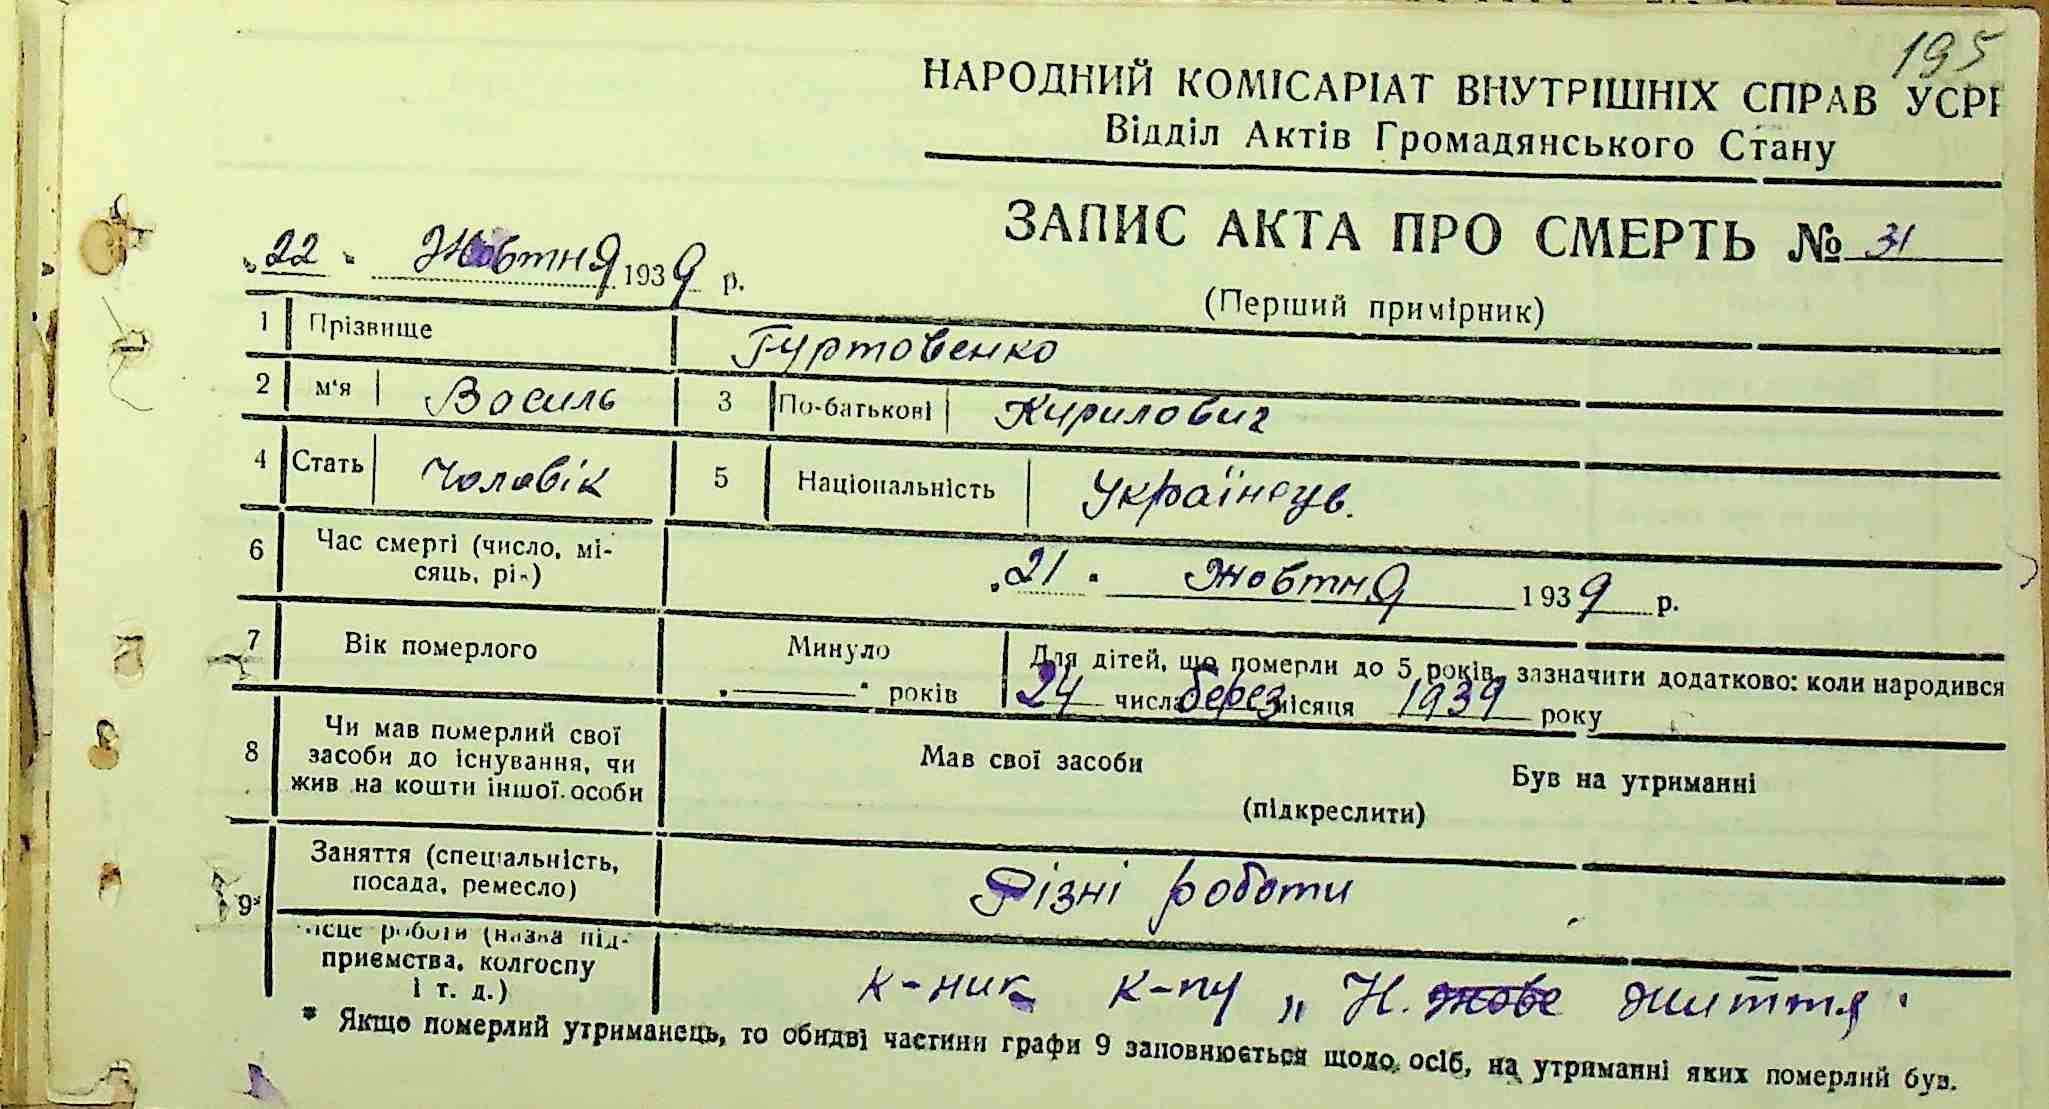 195
НАРОДНИЙ КОМІСАРІАТ ВНУТРІШНІХ СПРАВ УСРР
Відділ Актів Громадянського Стану
ЗАПИС АКТА ПРО СМЕРТЬ № 31
„22" Жовтня 1939 р.
(Перший примірник)
1 Прізвище Гуртовенко
2 м'я Василь 3 По-батькові Кирилович
4 Стать чоловік 5 Національність Українець.
6 Час смерті (число, мі-
сяць, рік) „21" жовтня 1939 р.
7 Вік померлого Минуло Для дітей, що померли до 5 років, зазначити додатково: коли народився
„—" років 24 числа берез місяця 1939 року
8 Чи мав померлий свої
засоби до існування, чи
жив на кошти іншої особи
Мав свої засоби Був на утриманні
(підкреслити)
9* Заняття (спеціальність,
посада, ремесло) Різні роботи
місце роботи (назва під-
приємства, колгоспу
і т. д.) к-ник к-пу „Н. жове життя"
* Якщо померлий утриманець, то обидві частини графи 9 заповнюється щодо осіб, на утриманні яких померлий був.